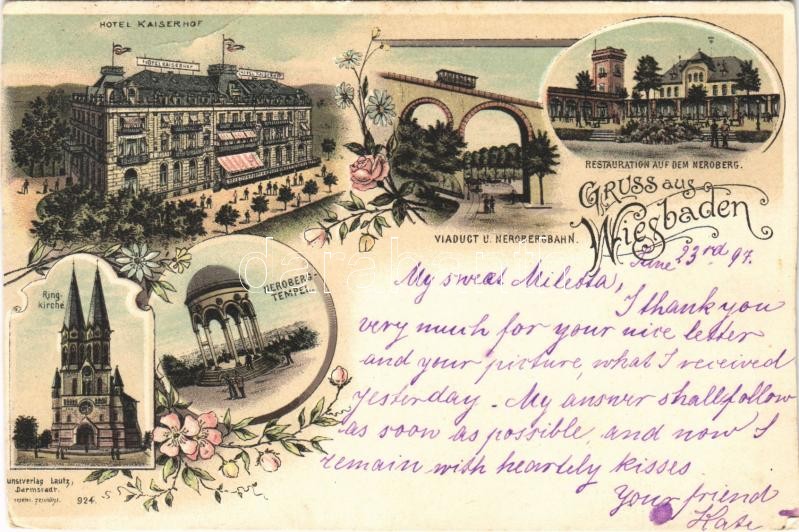 HOTEL KAISERHOF
HOTEL KAISERHOF
RESTAURATION AUF DEM NEROBERG.
VIADUCT U. NEROBERGBAHN.
GRUSS aus
Wiesbaden
Ring-
kirche
NEROBERG-
TEMPEL
June 23rd 97.
My sweet Miletta,
I thank you
very much for your nice letter
and your picture, what I received
yesterday. My answer shall follow
as soon as possible, and now I
remain with heartely kisses
Your friend
Kate
unstverlag Lautz,
Darmstadt.
924.